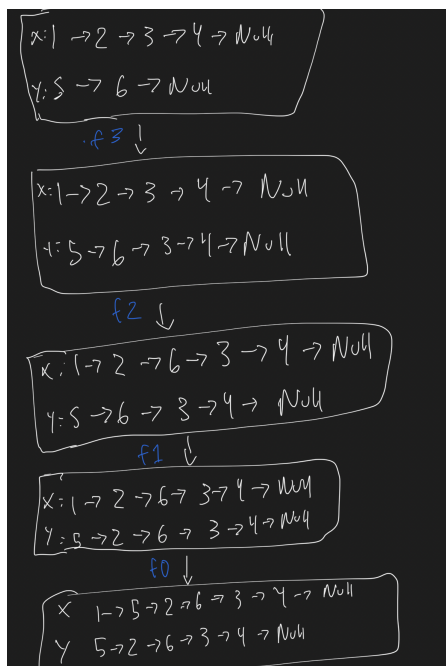 X:1 → 2 → 3 → 4 → Null
Y:5 → 6 → Null
f3 ↓
X:1 → 2 → 3 → 4 → Null
Y:5 → 6 → 3 → 4 → Null
f2 ↓
X:1 → 2 → 6 → 3 → 4 → Null
Y:5 → 6 → 3 → 4 → Null
f1 ↓
X:1 → 2 → 6 → 3 → 4 → Null
Y:5 → 2 → 6 → 3 → 4 → Null
f0 ↓
X 1 → 5 → 2 → 6 → 3 → 4 → Null
Y 5 → 2 → 6 → 3 → 4 → Null